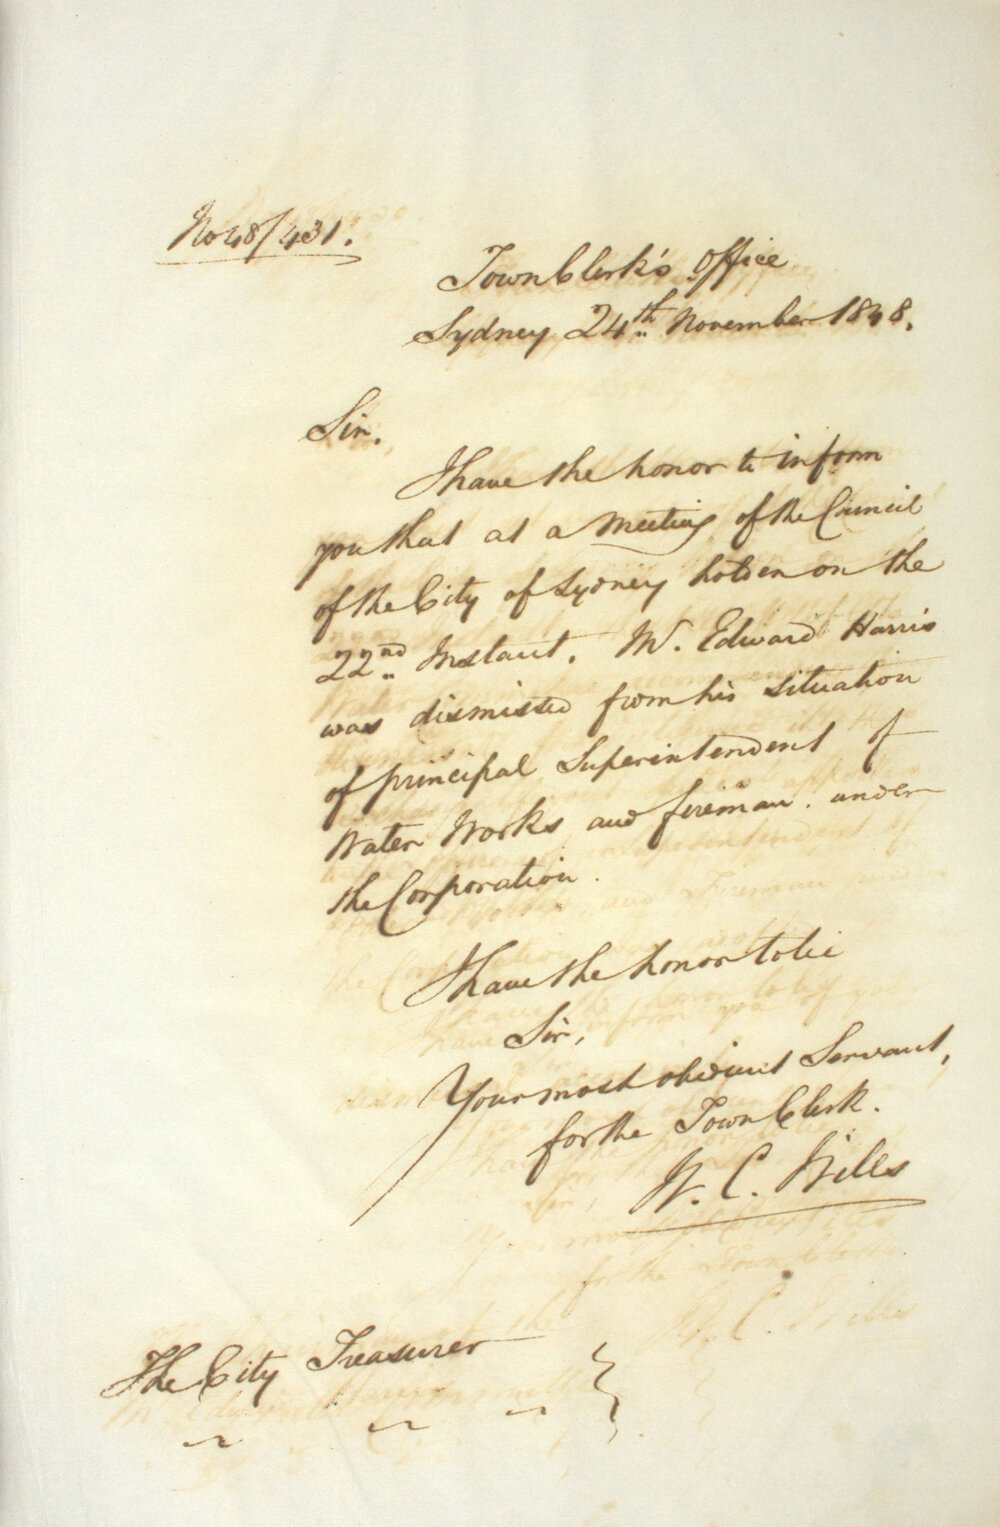 No 48/431.
Town Clerk's Office
Sydney 24th November 1848.
Sir,
I have the honor to inform
you that at a Meeting of the Council
of the City of Sydney holden on the
22nd Instant, Mr. Edward Harris
was dismissed from his situation
of principal Superintendent of
Water Works and fireman under
the Corporation.
I have the honor to be
Sir,
Your most obedient Servant,
for the Town Clerk.
W. C. Wills
The City Treasurer